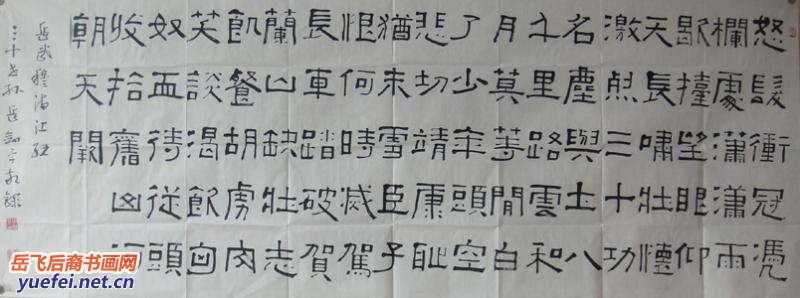 怒髮衝冠憑
欄處瀟瀟雨
歇擡望眼仰
天長嘯壯懷
激烈三十功
名塵與土八
千里路雲和
月莫等閒白
了少年頭空
悲切靖康恥
猶未雪臣子
恨何時滅駕
長車踏破賀
蘭山缺壯志
飢餐胡虜肉
笑談渴飲匈
奴血待從頭
收拾舊山河
朝天闕
岳武穆滿江紅
三十世孙岳敬録
岳飞后裔书画网
yuefei.net.cn